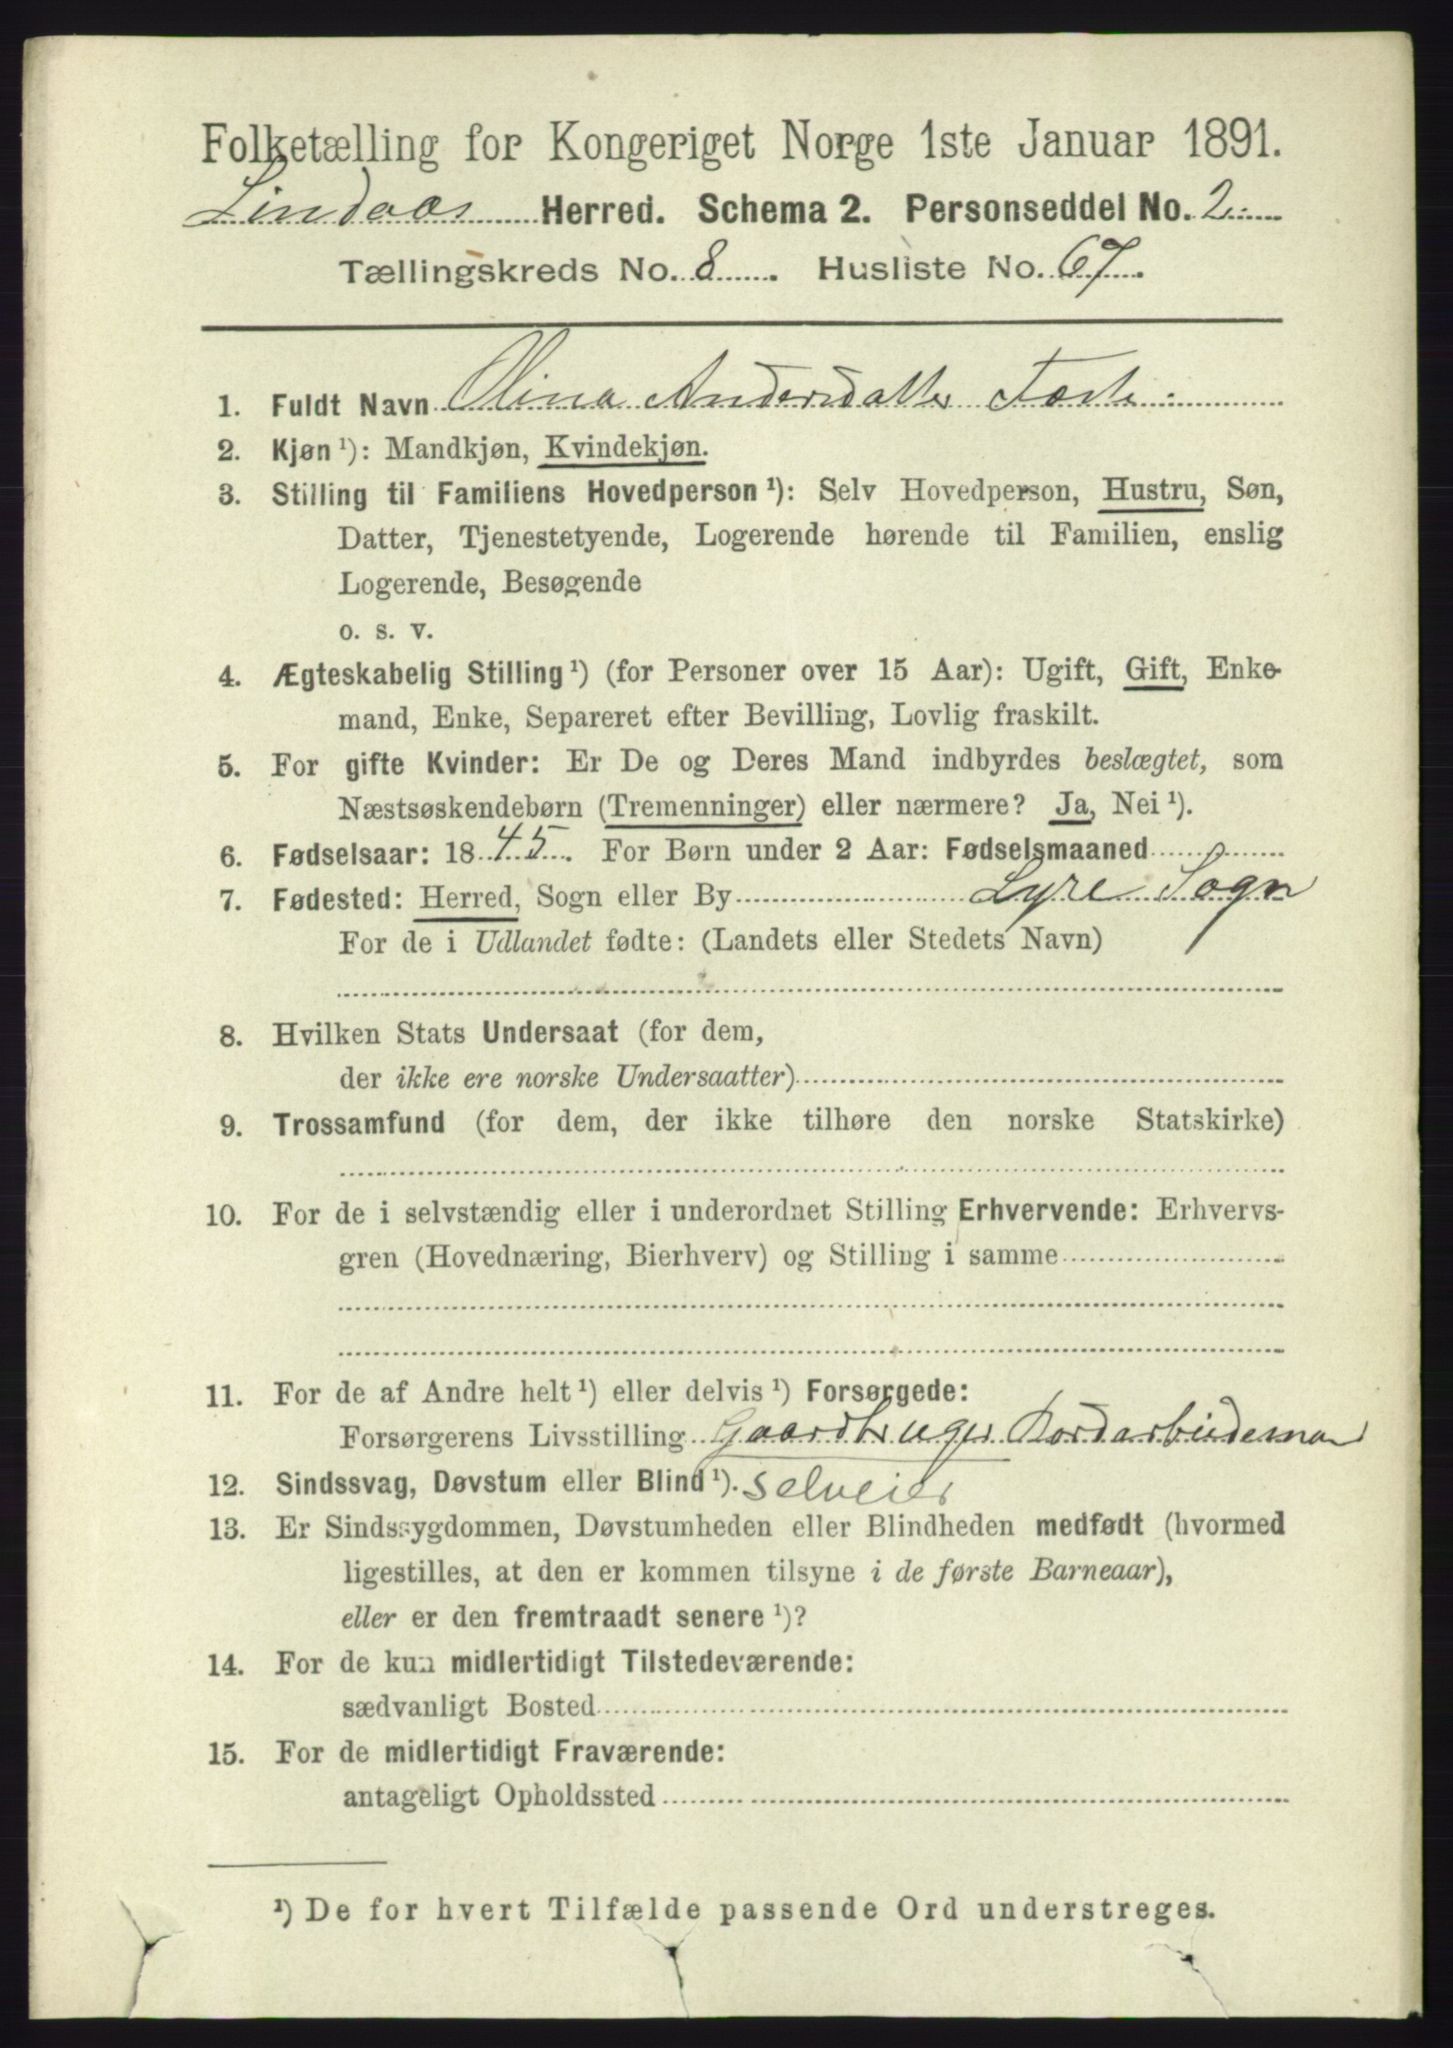 Folketælling for Kongeriget Norge 1ste Januar 1891.
Lindaas Herred. Schema 2. Personseddel No. 2
Tællingskreds No. 8. Husliste No. 67.
1. Fuldt Navn Olina Andersdatter
2. Kjøn ¹): Mandkjøn, Kvindekjøn.
3. Stilling til Familiens Hovedperson ¹): Selv Hovedperson, Hustru, Søn,
Datter, Tjenestetyende, Logerende hørende til Familien, enslig
Logerende, Besøgende
o. s. v.
4. Ægteskabelig Stilling ¹) (for Personer over 15 Aar): Ugift, Gift, Enke-
mand, Enke, Separeret efter Bevilling, Lovlig fraskilt.
5. For gifte Kvinder: Er De og Deres Mand indbyrdes beslægtet, som
Næstsøskendebørn (Tremenninger) eller nærmere? Ja, Nei ¹).
6. Fødselsaar: 1845. For Børn under 2 Aar: Fødselsmaaned
7. Fødested: Herred, Sogn eller By Lyre Sogn
For de i Udlandet fødte: (Landets eller Stedets Navn)
8. Hvilken Stats Undersaat (for dem,
der ikke ere norske Undersaatter)
9. Trossamfund (for dem, der ikke tilhøre den norske Statskirke)
10. For de i selvstændig eller i underordnet Stilling Erhvervende: Erhvervs-
gren (Hovednæring, Bierhverv) og Stilling i samme
11. For de af Andre helt ¹) eller delvis ¹) Forsørgede:
Forsørgerens Livsstilling Gaardbruger
12. Sindssvag, Døvstum eller Blind ¹). selveier
13. Er Sindssygdommen, Døvstumheden eller Blindheden medfødt (hvormed
ligestilles, at den er kommen tilsyne i de første Barneaar),
eller er den fremtraadt senere ¹)?
14. For de kun midlertidigt Tilstedeværende:
sædvanligt Bosted
15. For de midlertidigt Fraværende:
antageligt Opholdssted
¹) De for hvert Tilfælde passende Ord understreges.